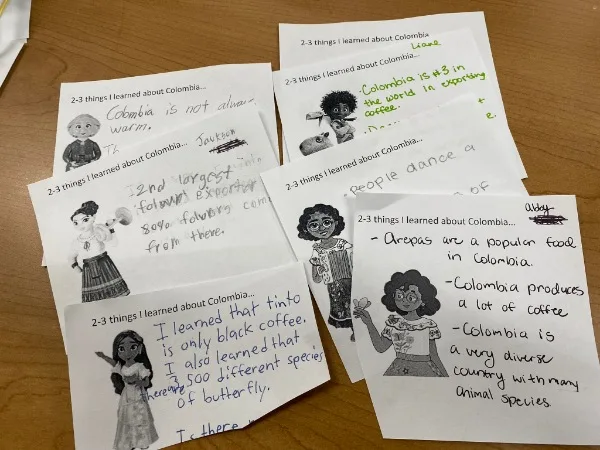 2-3 things I learned about Colombia...
Colombia is not always
warm.
2-3 things I learned about Colombia...
Liane
2-3 things I learned about Colombia...
Colombia is #3 in
the world in exporting
coffee.
2-3 things I learned about Colombia...
Jackson
2nd largest
exporter
80%
from there.
2-3 things I learned about Colombia...
People dance a
of
2-3 things I learned about Colombia...
I learned that tinto
is only black coffee.
I also learned that
there are 3,500 different species
of butterfly.
Is there
2-3 things I learned about Colombia...
Abby
- Arepas are a popular food
in Colombia.
- Colombia produces
a lot of coffee
- Colombia is
a very diverse
country with many
animal species.